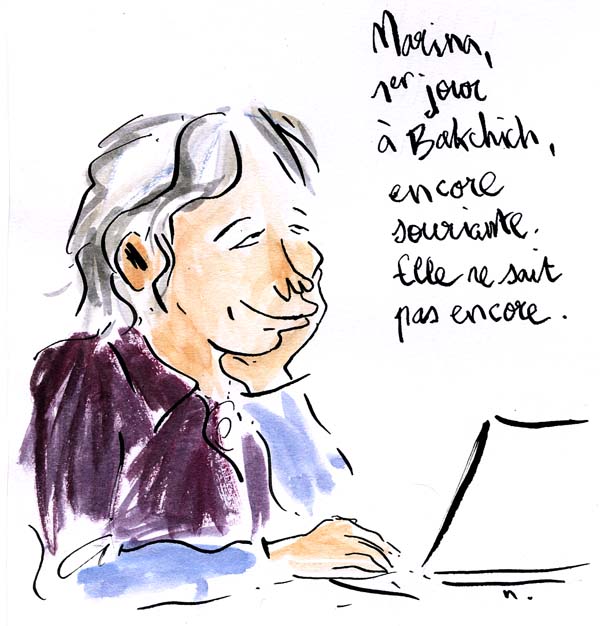 Marina,
1er jour
à Bakchich,
encore
souriante.
Elle ne sait
pas encore.
n.